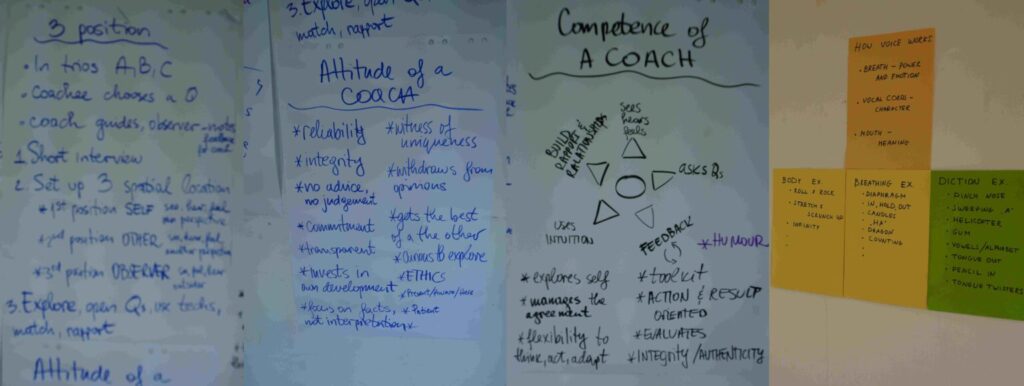 3 position
• In trios A, B, C
• Coachee chooses a Q
• coach guides, observer - notes
1. Short interview
2. Set up 3 spatial location
* 1st position SELF see, hear, feel
own perspective
* 2nd position OTHER
another perspective
* 3rd position OBSERVER
3. Explore, open Qs, use techs,
match, rapport
Attitude of a
3. Explore, open Qs
match, rapport
Attitude of a
COACH
* reliability
* integrity
* no advice,
no judgement
* commitment
* transparent
* Invests in
own development
* focus on facts,
not interpretation
* witness of
uniqueness
* withdraws from
* gets the best
of a the other
* Curious to explore
* ETHICS
* Present/Aware/Here
* Patient
Competence of
A COACH
SEES
hears
feels
BUILD
RAPPORT &
asks Qs
USES
INTUITION
FEEDBACK
* HUMOUR
* explores self
* manages the
agreement
* flexibility to
think, act, adapt
* toolkit
* ACTION & RESULT
ORIENTED
* EVALUATES
* INTEGRITY/AUTHENTICITY
HOW VOICE WORKS
• BREATH - POWER
AND EMOTION
• VOCAL CORDS -
CHARACTER
• MOUTH -
MEANING
BODY EX.
• ROLL & ROCK
• STRETCH &
SCRUNCH UP
• INFINITY
BREATHING EX.
• DIAPHRAGM
• IN, HOLD, OUT
• CANDLES
• "HA"
• DRAGON
• COUNTING
DICTION EX.
• PINCH NOSE
• "A"
• HELICOPTER
• GUM
• VOWELS/ALPHABET
• TONGUE OUT
• PENCIL IN
• TONGUE TWISTERS